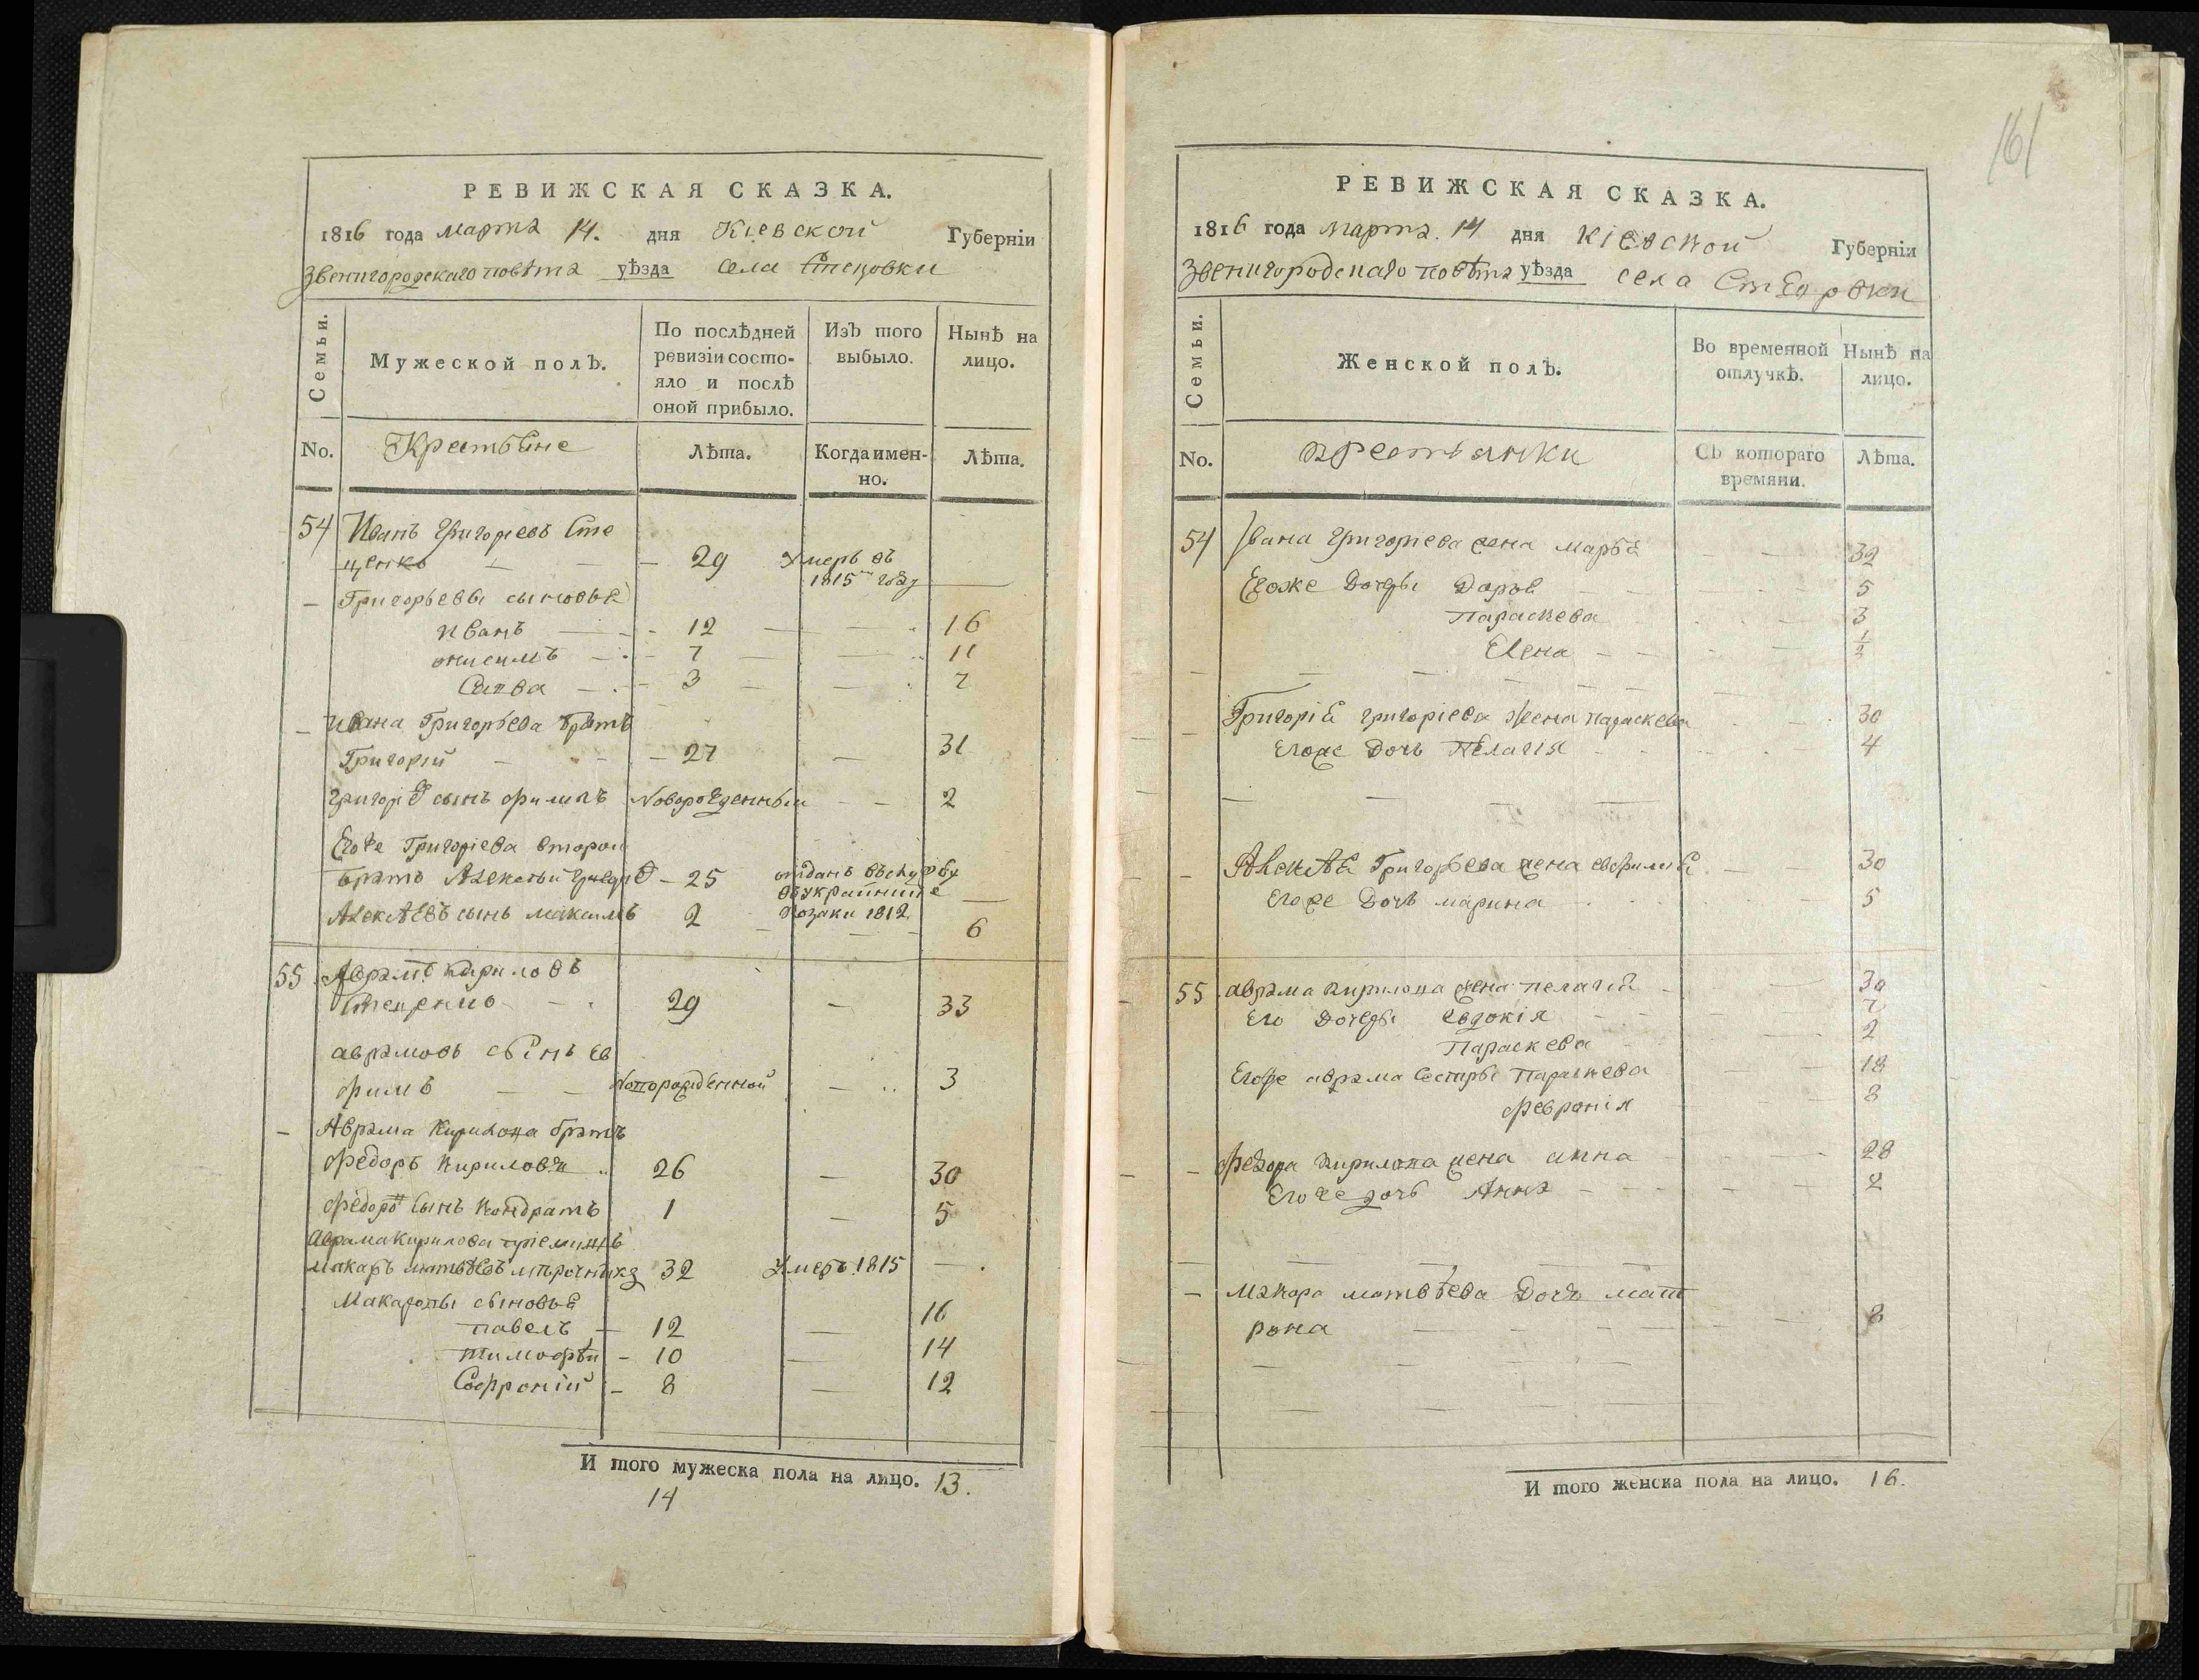 РЕВИЖСКАЯ СКАЗКА.
1816 года марта 14. дня Кіевской Губерніи
Звенигородскаго повѣта уѣзда села Стецовки
Семьи.
Мужеской полъ.
По послѣдней ревизіи состо-
яло и послѣ
оной прибыло.
Изъ того
выбыло.
Нынѣ на
лицо.
No.
Крестьяне
Лѣта.
Когда имен-
но.
Лѣта.
54 Иванъ Григорьевъ Сте
ценко 29 Умеръ въ
1815 году
Григорьевы сыновья
иванъ 12 16
онисимъ 7 11
Савва 3 7
ивана Григорьева братъ
Григорій 27 31
григорія сынъ филипъ Новорожденный 2
Егоже Григорієва второй
братъ Алексѣй 25 отданъ въ службу
въ украинские
козаки 1812
Алексѣевъ сынъ максимъ 2 6
55 Аврамъ кириловъ
Стеценко 29 33
аврамовъ сынъ ев
фимъ Новорожденной 3
Аврама Кирилова братъ
федоръ кириловъ 26 30
федора сынъ кондратъ 1 5
аврама кирилова
макаръ матвѣевъ 32 Умеръ 1815
Макаровы сыновья
павелъ 12 16
тимофѣй 10 14
Софроній 8 12
И того мужеска пола на лицо. 13.
14
161
РЕВИЖСКАЯ СКАЗКА.
1816 года марта. 14 дня кіевской Губерніи
Звенигородскаго повѣта уѣзда села Стецовки
Семьи.
Женской полъ.
Во временной
отлучкѣ.
Нынѣ на
лицо.
No.
крестьянки
Съ котораго
времяни.
Лѣта.
54 Ивана Григорьева жена марья 32
Егоже дочеры Дарья 5
Параскева 3
Елена 1/2
Григорія григоріева жена параскева 30
Егоже дочь Пелагія 4
Алексѣя Григорьева жена евфимія 30
Егоже Дочь марина 5
55 аврама кирилова жена пелагія 30
Его дочеры евдокія 7
Параскева 2
Егоже аврама сестры Параскева 18
февронія 8
федора кирилова жена анна 28
Егоже дочь Анна 2
макара матвѣева Дочь мат
рона 8
И того женска пола на лицо. 16.